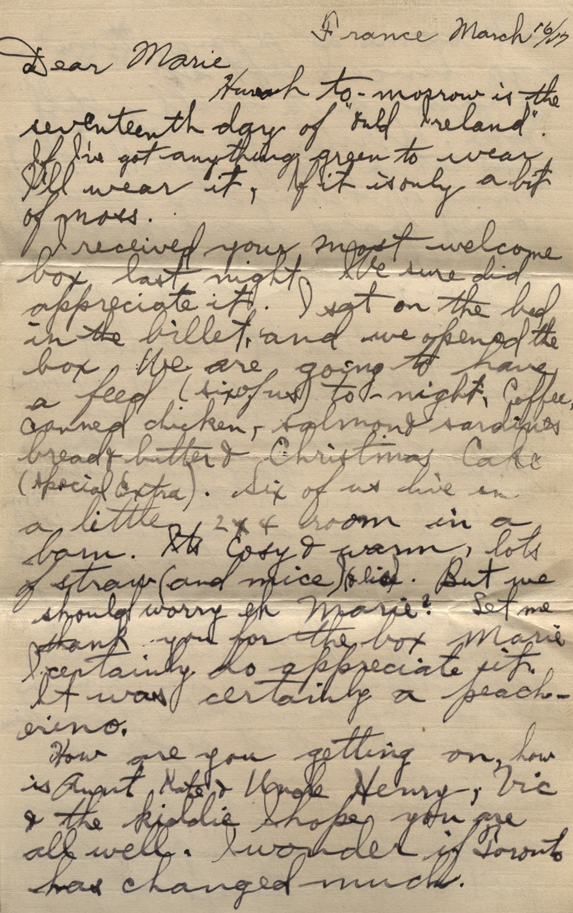 France March 16/17
Dear Marie
Hurrah to-morrow is the
seventeenth day of "ould Ireland".
If I've got anything green to wear
I'll wear it, if it is only a bit
of moss.
I received your most welcome
box last night. We sure did
appreciate it. I sat on the bed
in the billet, and we opened the
box We are going to have
a feed (six of us) to-night, Coffee,
canned chicken, salmon & sardines
bread & butter & Christmas Cake
(special Extra). Six of us live in
a little 2 x 4 room in a
barn. Its Cosy & warm, lots
of straw (and mice) (& lice). But we
should worry eh Marie? Let me
thank you for the box Marie
I certainly do appreciate it.
It was certainly a peach-
erino.
How are you getting on, how
is Aunt Kate & Uncle Henry, Vic
& the kiddie I hope you are
all well. I wonder if Toronto
has changed much.